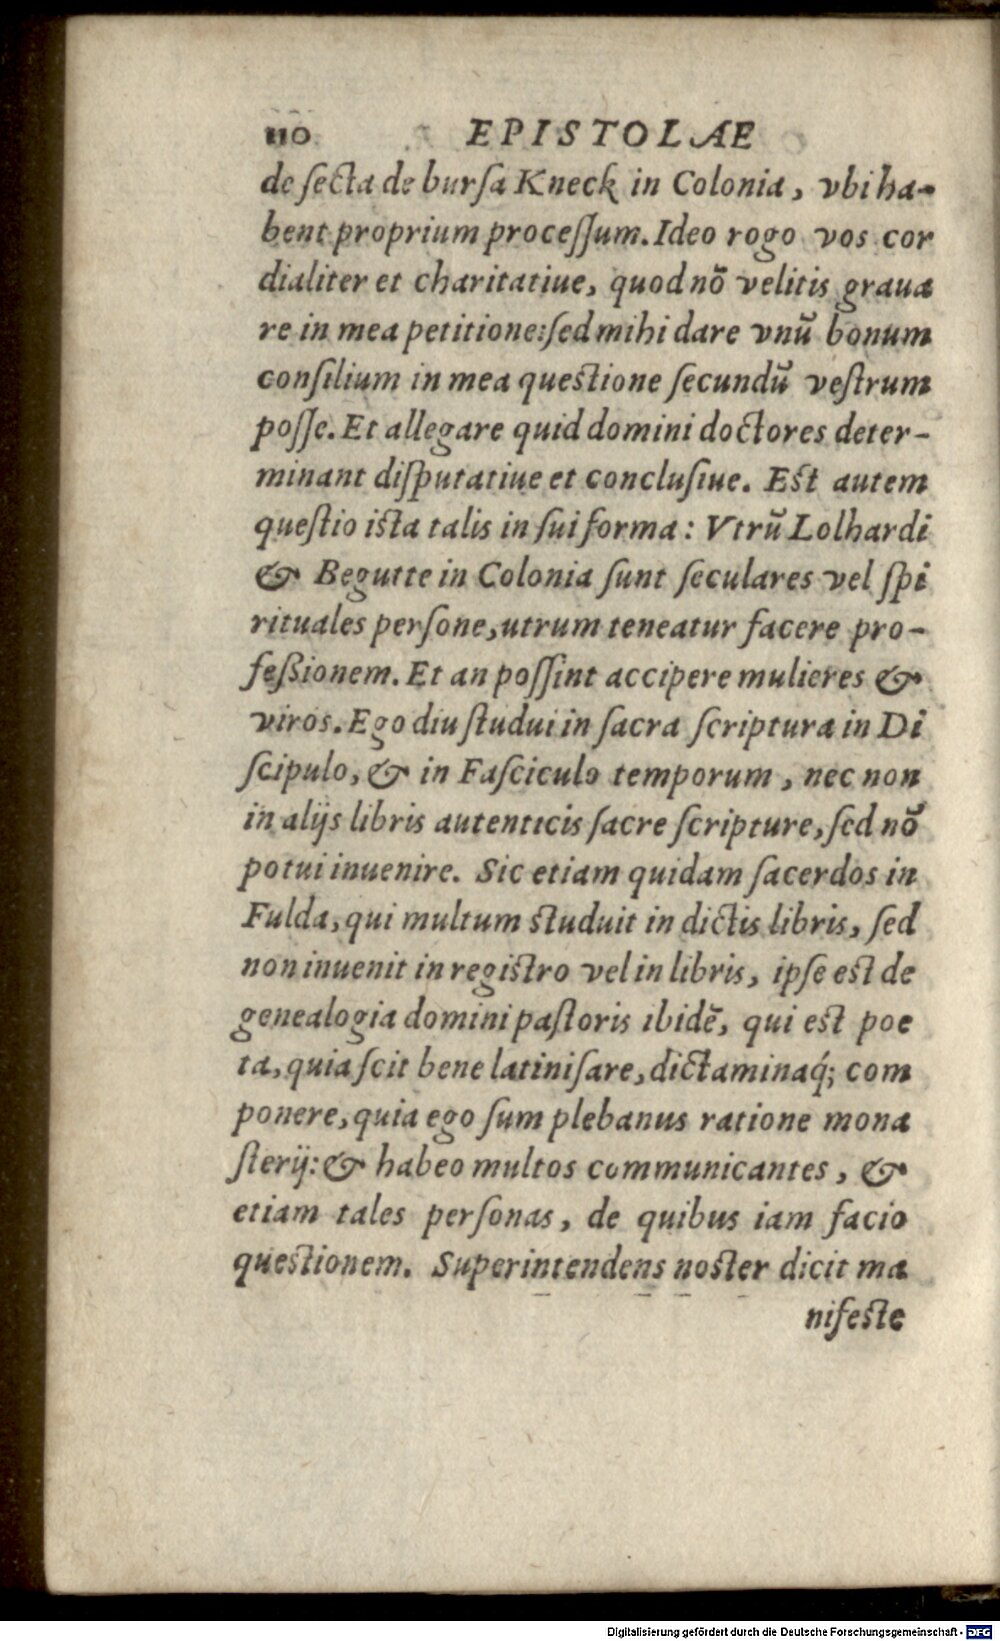 110 EPISTOLAE
de ſecta de burſa Kneck in Colonia, vbi ha-
bent proprium proceſſum. Ideo rogo vos cor
dialiter et charitatiue, quod nõ velitis graua
re in mea petitione: ſed mihi dare vnũ bonum
conſilium in mea queſtione ſecundũ veſtrum
poſſe. Et allegare quid domini doctores deter-
minant diſputatiue et concluſiue. Eſt autem
queſtio iſta talis in ſui forma: Vtrũ Lolhardi
& Begutte in Colonia ſunt ſeculares vel ſpi
rituales perſone, utrum teneatur facere pro-
feßionem. Et an poſſint accipere mulieres &
viros. Ego diu ſtudui in ſacra ſcriptura in Di
ſcipulo, & in Faſciculo temporum, nec non
in alijs libris autenticis ſacre ſcripture, ſed nõ
potui inuenire. Sic etiam quidam ſacerdos in
Fulda, qui multum ſtuduit in dictis libris, ſed
non inuenit in regiſtro vel in libris, ipſe eſt de
genealogia domini paſtoris ibidẽ, qui eſt poe
ta, quia ſcit bene latiniſare, dictaminaq́; com
ponere, quia ego ſum plebanus ratione mona
ſterij: & habeo multos communicantes, &
etiam tales perſonas, de quibus iam facio
queſtionem. Superintendens noſter dicit ma
nifeſte
Digitalisierung gefördert durch die Deutsche Forschungsgemeinschaft - DFG